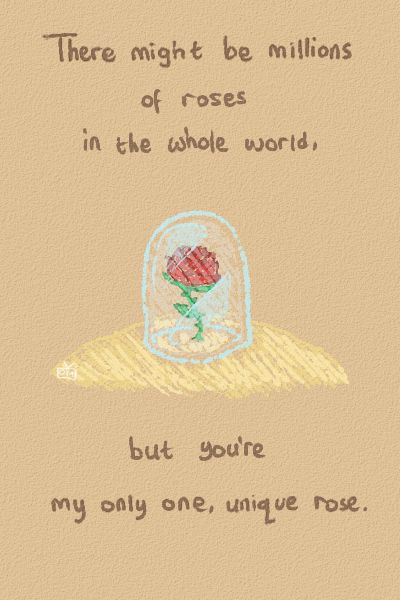 There might be millions
of roses
in the whole world,
but you're
my only one, unique rose.